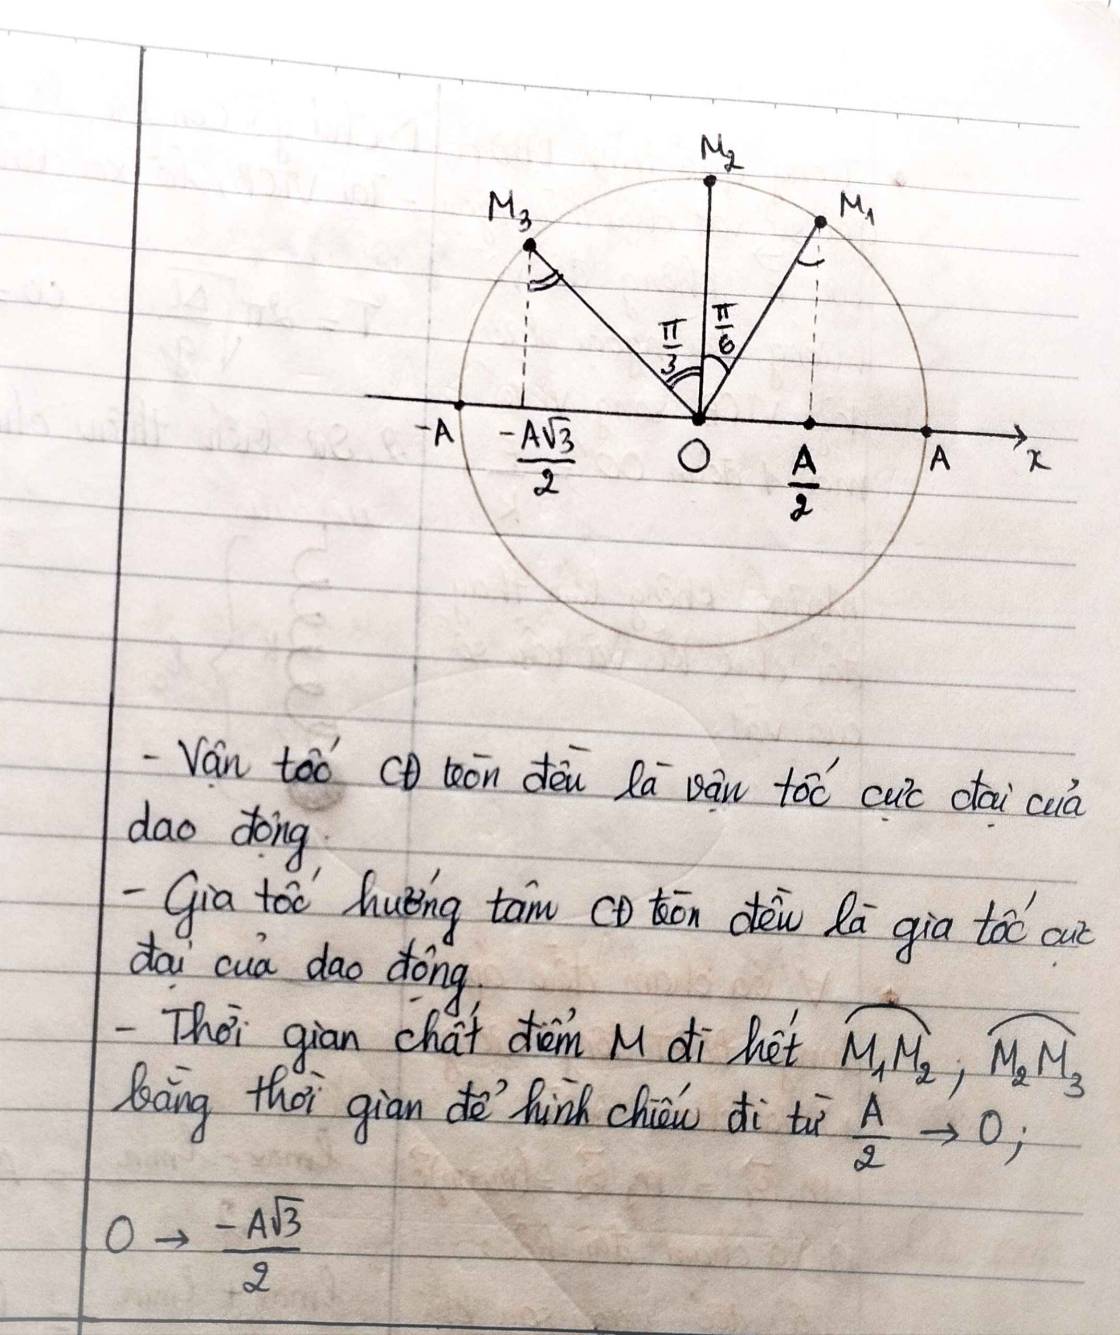 M₂
M₃ M₁
π/3 π/6
-A -A√3/2 O A/2 A x
- Vận tốc CĐ tròn đều là vận tốc cực đại của
dao động.
- Gia tốc hướng tâm CĐ tròn đều là gia tốc cực
đại của dao động.
- Thời gian chất điểm M đi hết M₁M₂; M₂M₃
bằng thời gian để hình chiếu đi từ A/2 → O;
O → -A√3/2